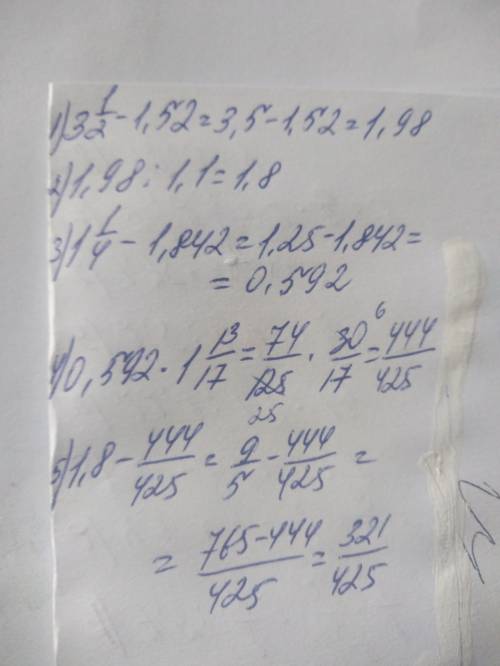 1) 3 1/2 - 1,52 = 3,5 - 1,52 = 1,98
2) 1,98 : 1,1 = 1,8
3) 1 1/4 - 1,842 = 1,25 - 1,842 =
= 0,592
4) 0,592 · 1 13/17 = 74/125 25 · 30 6/17 = 444/425
5) 1,8 - 444/425 = 9/5 - 444/425 =
= 765-444/425 = 321/425